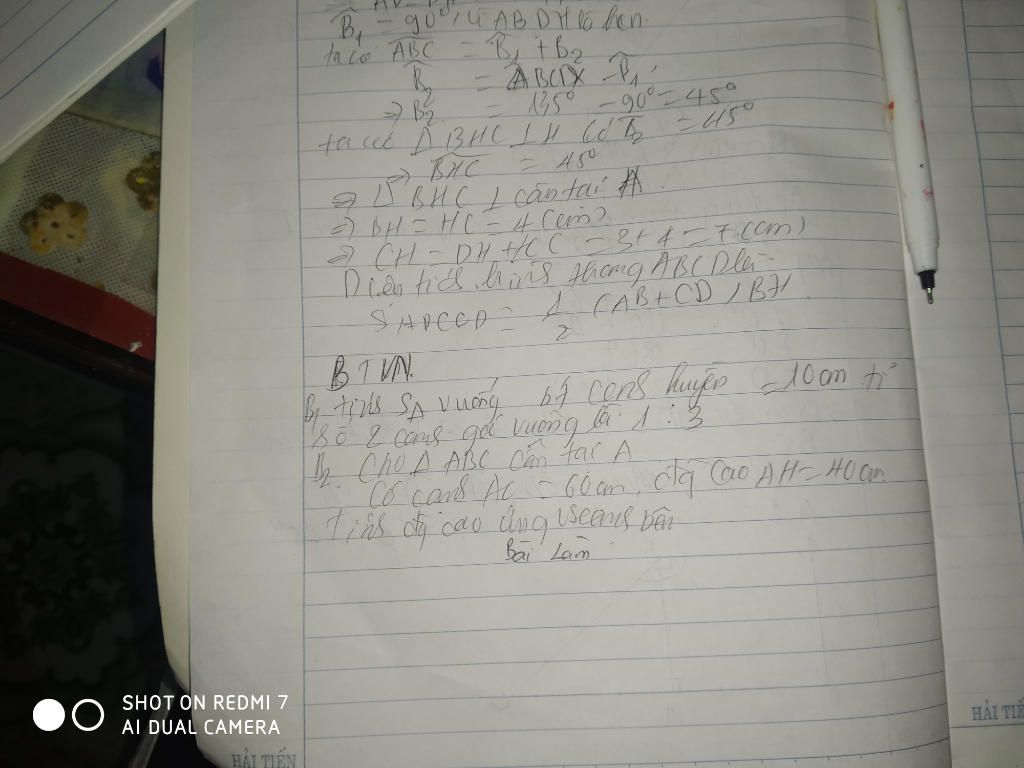 B̂₁ = 90°
ta có ABC = B̂₁ + B₂
B̂₂ = ABCD - B̂₁
⇒ B̂₂ = 135° - 90° = 45°
ta có Δ BHC ⊥ H có B̂₂ = 45°
⇒ BHC = 45°
⇒ Δ BHC ⊥ cân tại H.
⇒ BH = HC = 4 (cm)
⇒ CH = DH + HC = 3 + 4 = 7 (cm)
Diện tích hình thang ABCD là
S ABCD = 1/2 (AB + CD) BH
BTVN.
B₁ tính SΔ vuông bt cạnh huyền = 10cm tỉ
số 2 cạnh góc vuông là 1 : 3
B₂ Cho Δ ABC cân tại A
Có cạnh AC = 60cm, đg cao AH = 40cm.
tính đg cao ứng vs cạnh bên
Bài Làm
SHOT ON REDMI 7
AI DUAL CAMERA
HẢI TIẾN
HẢI TIẾ